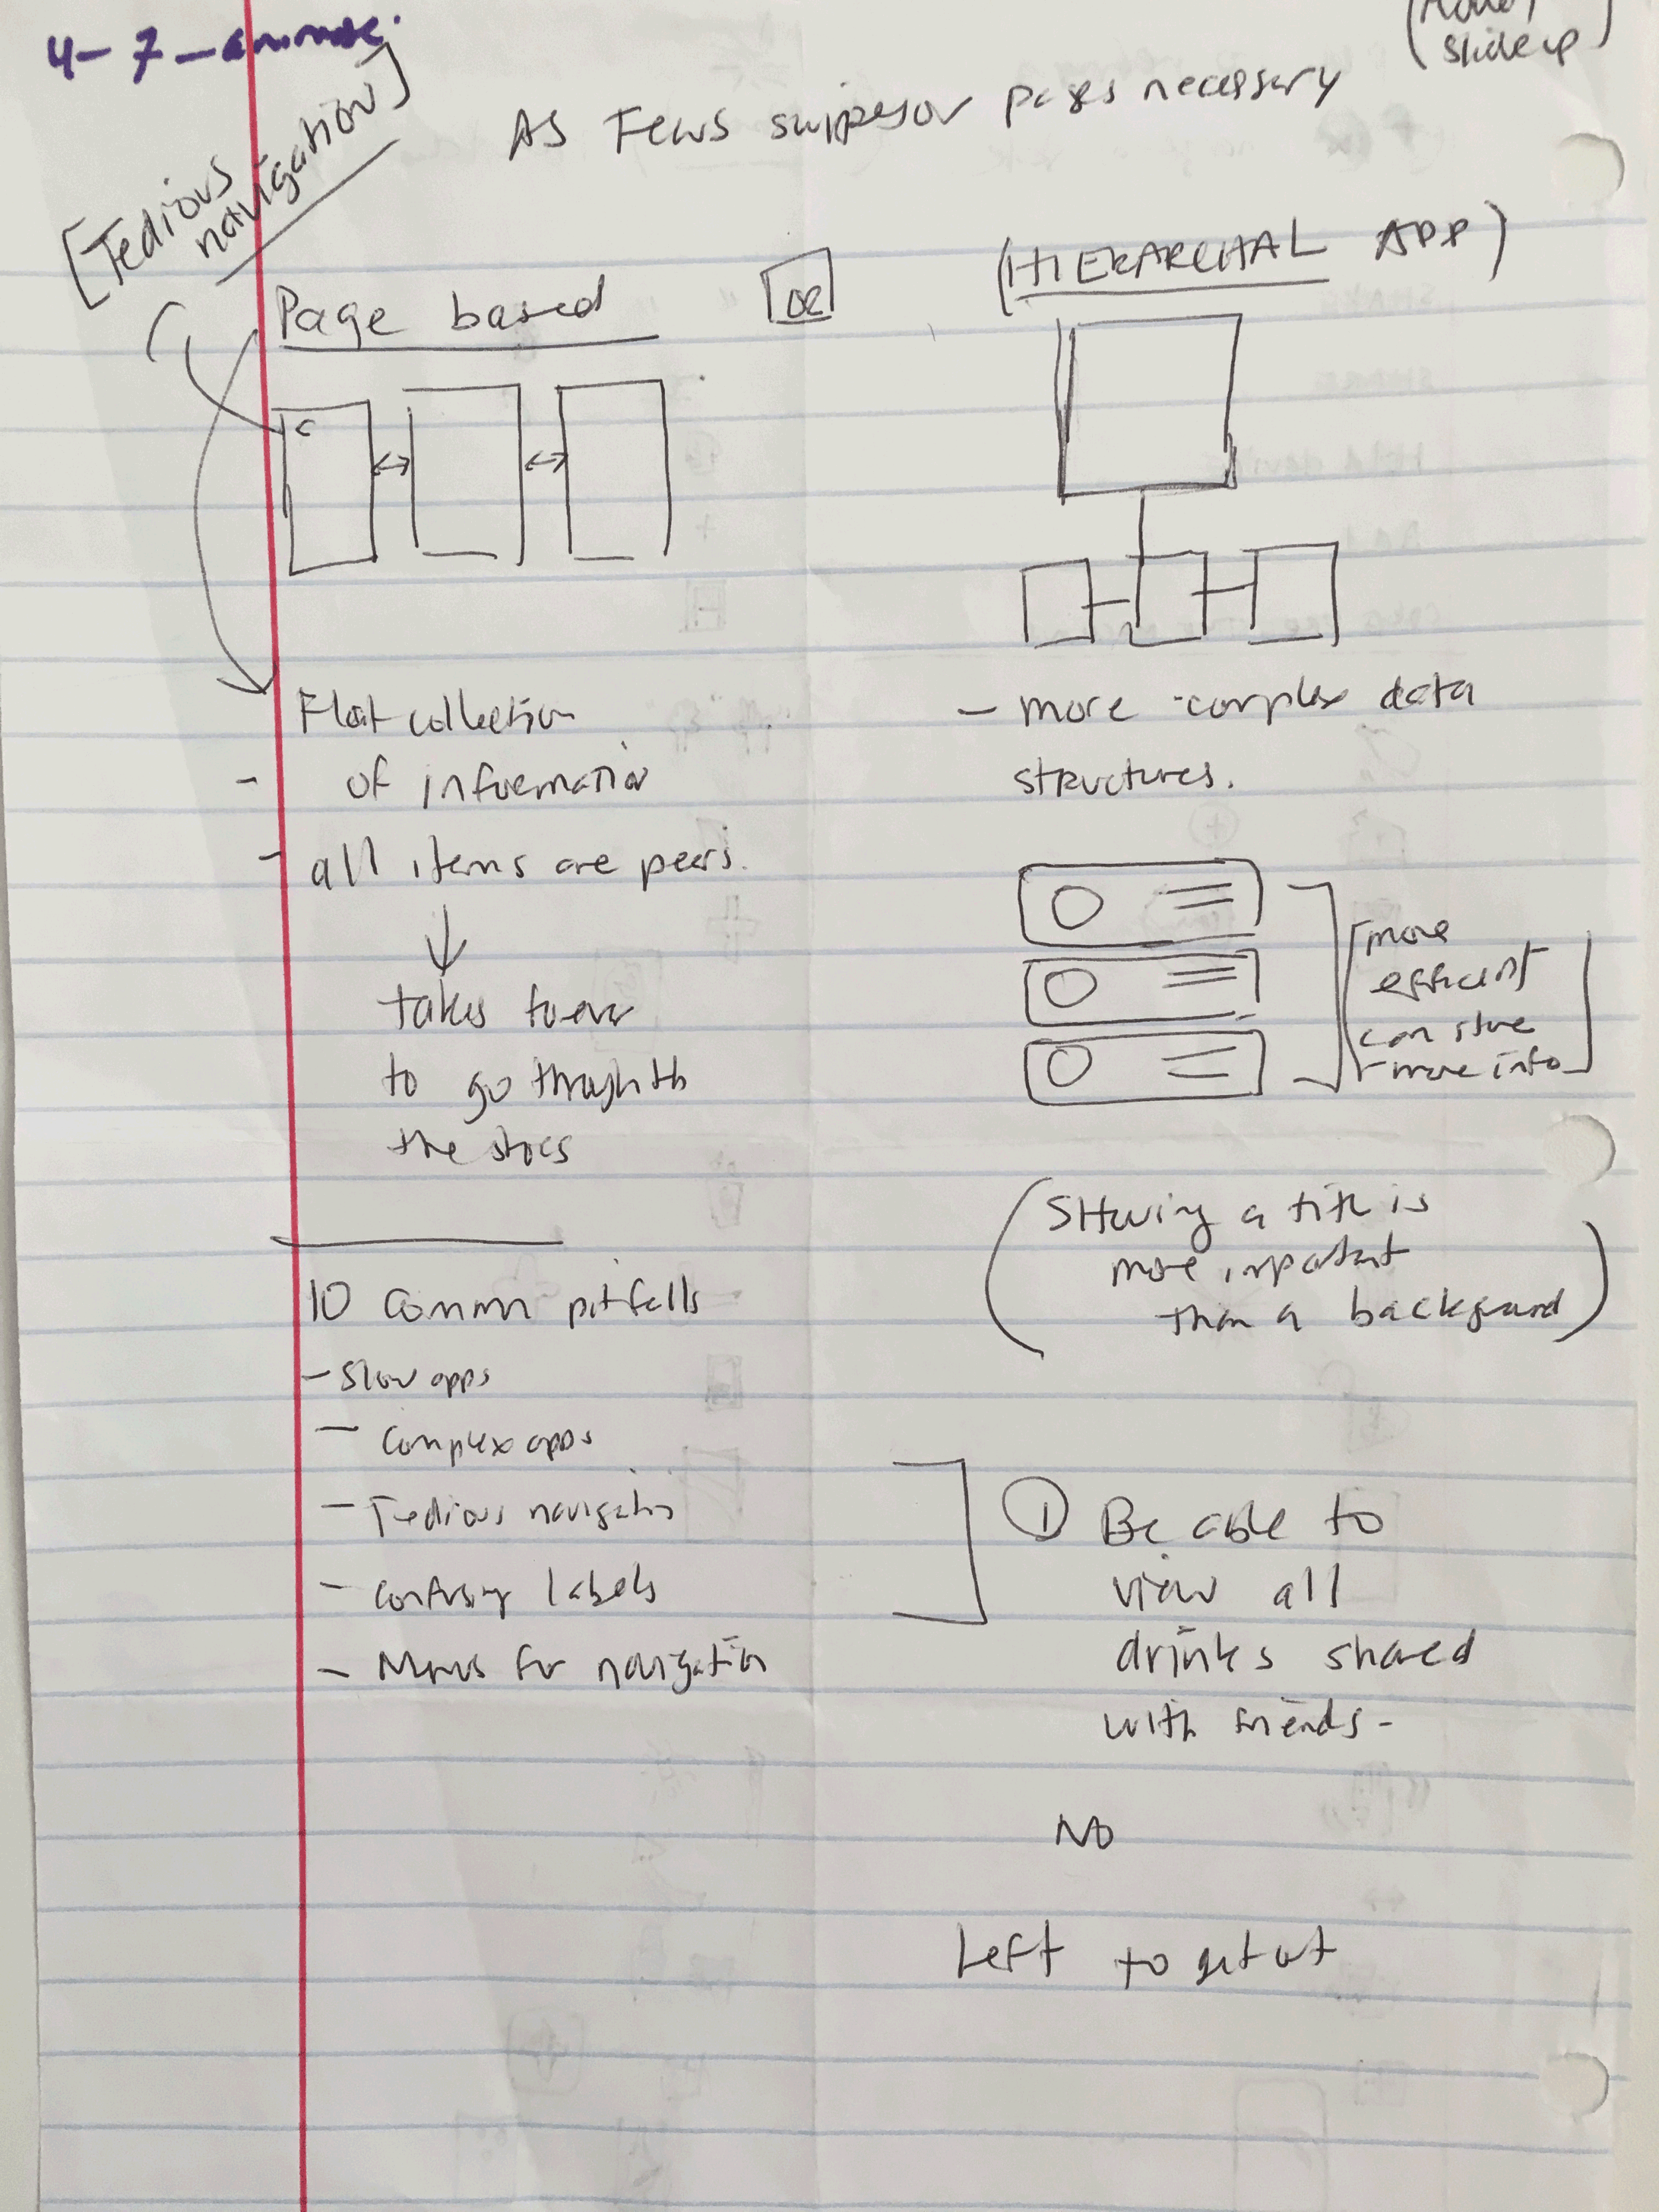 4-7-
slide up)
As Fews swipes or pages necessary
[Tedious
navigation]
Page based
OR
(HIERARCHAL APP)
Flat collection
- of information
- all items are peers.
takes
to go through
the
- more complex data
structures.
[more
efficient
can store
more info]
(SHowing a title is
more important
than a background)
10 common pitfalls
- Slow apps
- Complex apps
- Tedious navigation
- confusing labels
- Menus for navigation
① Be able to
view all
drinks shared
with friends-
NO
Left to get out